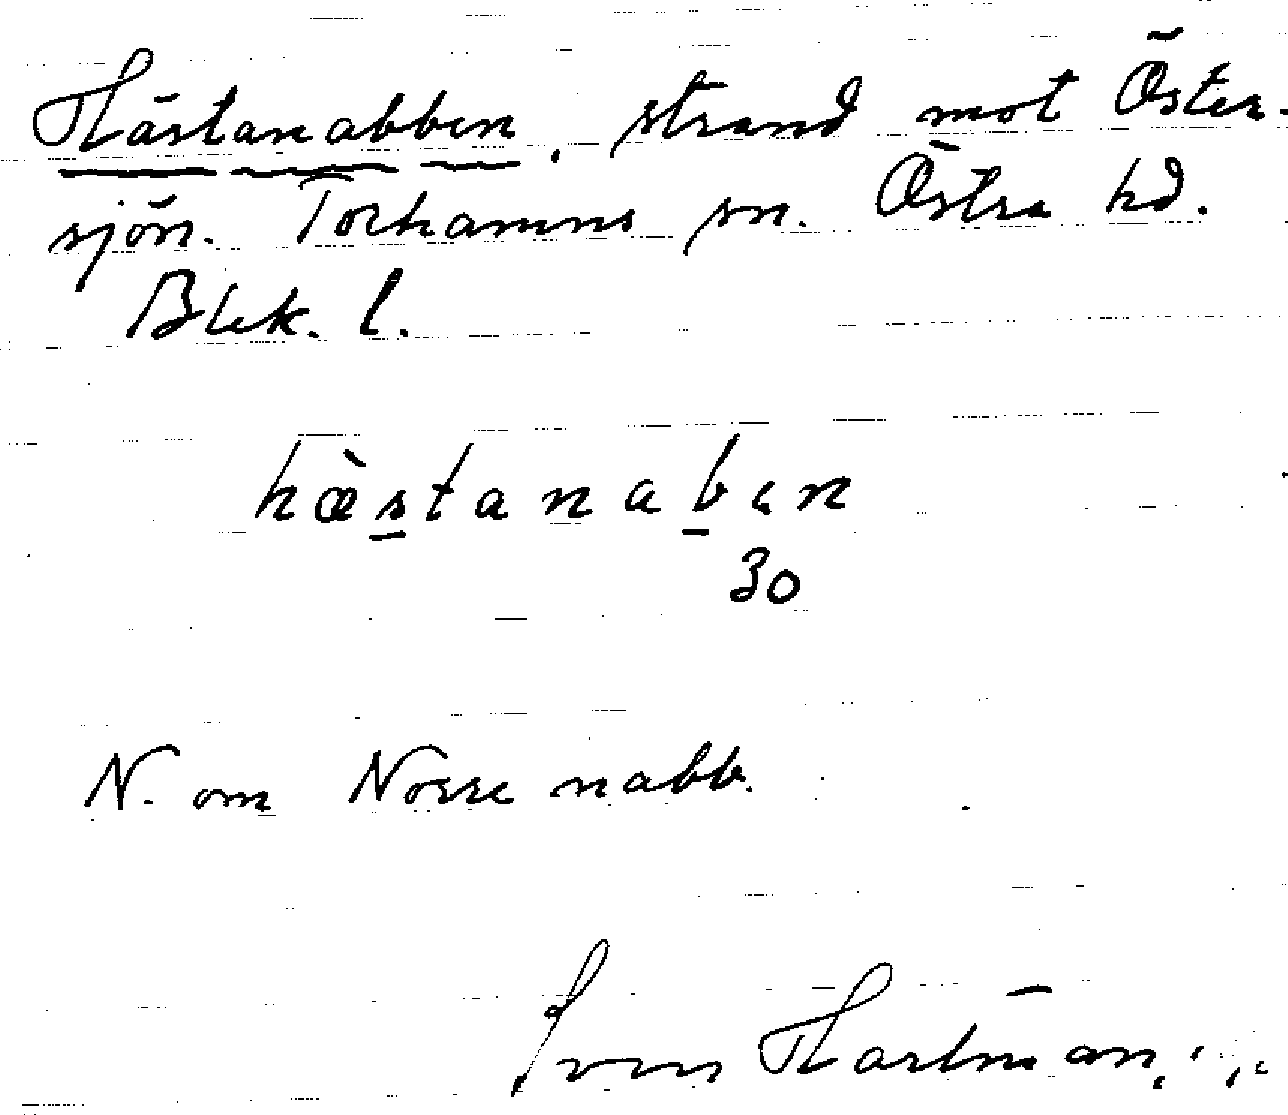 Hästanabben, strand mot Öster-
sjön. Torhamns sn. Östra hd.
Blek. l.
hæ̀stanaben
30
N. om Norre nabb.
Sven Hartman